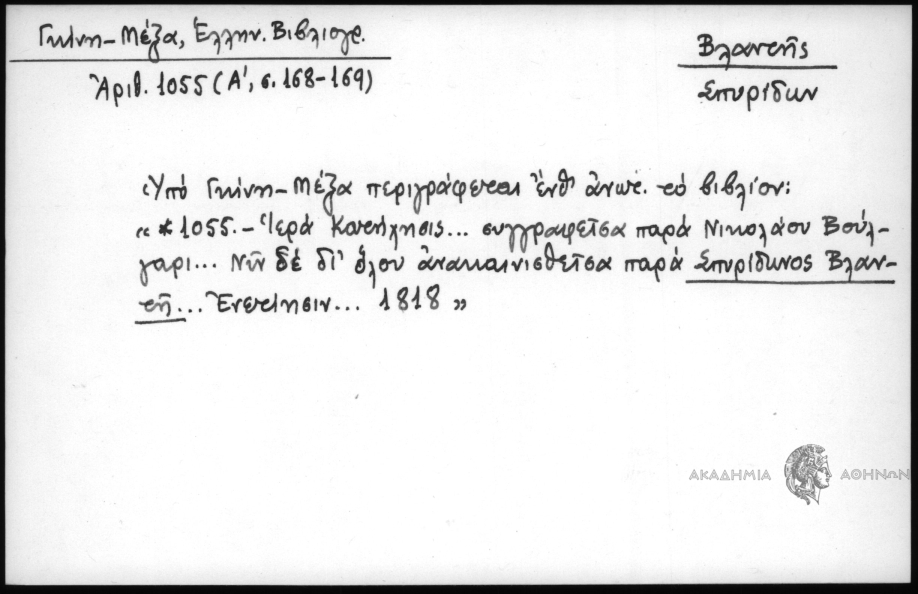 Γκίνη-Μέξα, Ἑλλην. Βιβλιογρ.
Ἀριθ. 1055 (Α', σ. 168-169)
Βλαντῆς
Σπυρίδων
Ὑπό Γκίνη-Μέξα περιγράφεται ἔνθ' ἀνωτ. τό βιβλίον:
« * 1055. - Ἱερά Κατήχησις... συγγραφεῖσα παρά Νικολάου Βούλ-
γαρι... Νῦν δέ δι' ὅλου ἀνακαινισθεῖσα παρά Σπυρίδωνος Βλαν-
τῆ... Ἐνετίησιν... 1818 »
ΑΚΑΔΗΜΙΑ ΑΘΗΝΩΝ